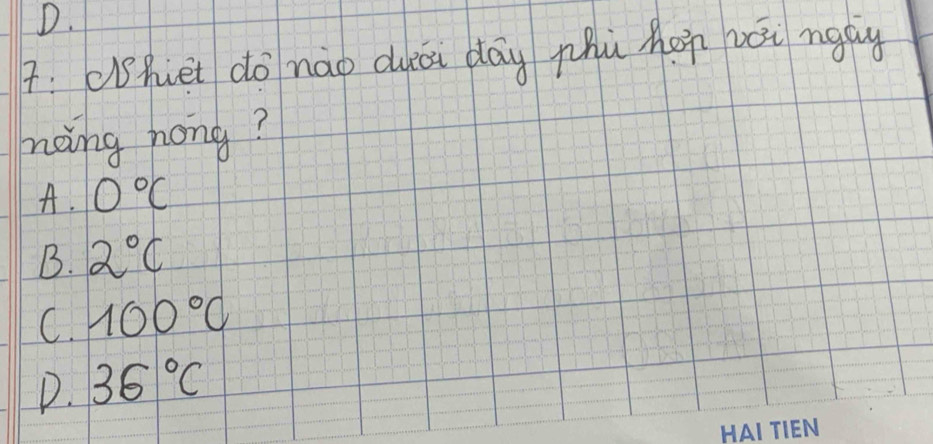 D.
7: Nhiệt độ nào dưới đây phù hợp với ngày
nắng nóng?
A. 0°C
B. 2°C
C. 100°C
D. 36°C
HAI TIEN